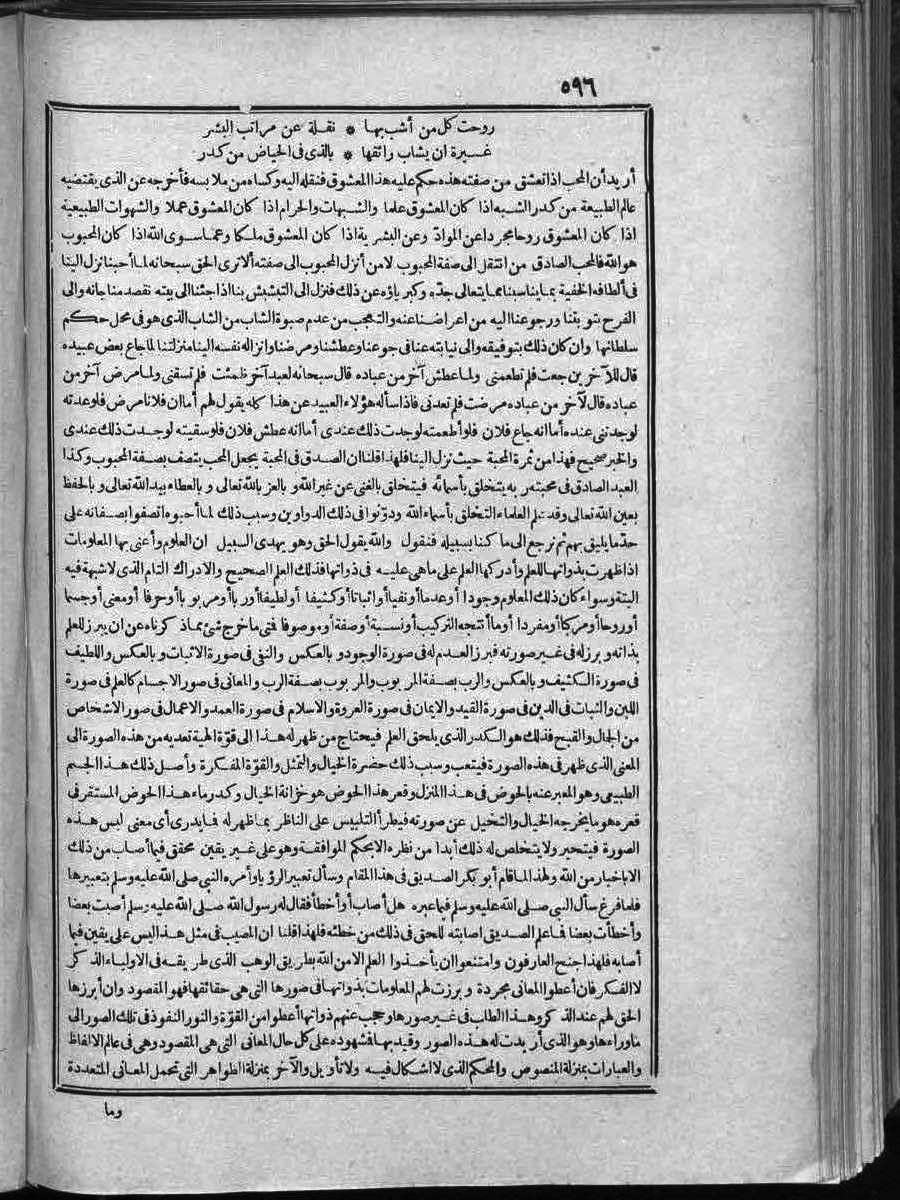 ٥٩٦
روحت كل من أشب بها * نقلة عن مراتب البشر
غيرة ان يشاب رائقها * بالذى فى الحياض من كدر
أريد أن المحب اذا تعشق من صفته هذه حكم عليه هذا المعشوق فنقله اليه وكساه من ملابسه فأخرجه عن الذى يقتضيه
عالم الطبيعة من كدر الشبه اذا كان المعشوق علما والشبهات والحرام اذا كان المعشوق عملا والشهوات الطبيعية
اذا كان المعشوق روحا مجردا عن المواد وعن البشرية اذا كان المعشوق ملكا وعما سوى الله اذا كان المحبوب
هو الله فالمحب الصادق من انتقل الى صفة المحبوب لا من أنزل المحبوب الى صفته ألا ترى الحق سبحانه لما أحبنا نزل الينا
فى ألطافه الخفية بما يناسبنا مما يتعالى جدّه وكبرياؤه عن ذلك فنزل الى التبشبش بنا اذا جئنا الى بيته نقصد مناجاته والى
الفرح بتوبتنا ورجوعنا اليه من اعراضنا عنه والتعجب من عدم صبوة الشاب من الشاب الذى هو فى محل حكم
سلطانها وان كان ذلك بتوفيقه والى نيابته عنا فى جوعنا وعطشنا ومرضنا وانزاله نفسه الينا منزلتنا لما جاع بعض عبيده
قال للآخرين جعت فلم تطعمنى ولما عطش آخر من عباده قال سبحانه لعبد آخر ظمئت فلم تسقنى ولما مرض آخر من
عباده قال لآخر من عباده مرضت فلم تعدنى فاذا سأله هؤلاء العبيد عن هذا كله يقول لهم أما ان فلانا مرض فلوعدته
لوجدتنى عنده أما انه جاع فلان فلو أطعمته لوجدت ذلك عندى أما انه عطش فلان فلو سقيته لوجدت ذلك عندى
والخبر صحيح فهذا من ثمرة المحبة حيث نزل الينا فلهذا قلنا ان الصدق فى المحبة يجعل المحب يتصف بصفة المحبوب وكذا
العبد الصادق فى محبته ربه يتخلق بأسمائه فيتخلق بالغنى عن غير الله و بالعز بالله تعالى و بالعطاء بيد الله تعالى و بالحفظ
بعين الله تعالى وقد علم العلماء التخلق بأسماء الله ودوّنوا فى ذلك الدواوين وسبب ذلك لما أحبوه اتصفوا بصفاته على
حدّ ما يليق بهم ثم نرجع الى ما كنا بسبيله فنقول والله يقول الحق وهو يهدى السبيل ان العلوم وأعنى بها المعلومات
اذا ظهرت بذواتها للعلم وأدركها العلم على ما هى عليه فى ذواتها فذلك العلم الصحيح والادراك التام الذى لا شبهة فيه
البتة وسواء كان ذلك المعلوم وجودا أو عدما أو نفيا أو اثباتا أو كثيفا أو لطيفا أو ربا أو مربوبا أو حرفا أو معنى أو جسما
أو روحا أو مركبا أو مفردا أو ما أنتجه التركيب أو نسبة أو صفة أو موصوفا فتى ما خرج شئ مما ذكرناه عن ان يبرز للعلم
بذاته وبرز له فى غير صورته فبرز العدم له فى صورة الوجود و بالعكس والنفى فى صورة الاثبات و بالعكس واللطيف
فى صورة الكثيف و بالعكس والرب بصفة المربوب والمربوب بصفة الرب والمعانى فى صور الاجسام كالعلم فى صورة
اللبن والثبات فى الدين فى صورة القيد والايمان فى صورة العروة والاسلام فى صورة العمد والاعمال فى صور الاشخاص
من الجمال والقبح فذلك هو الكدر الذى يلحق العلم فيحتاج من ظهر له هذا الى قوّة الهية تعديه من هذه الصورة الى
المعنى الذى ظهر فى هذه الصورة فيتعب وسبب ذلك حضرة الخيال والتمثل والقوّة المفكرة وأصل ذلك هذا الجسم
الطبيعى وهو المعبر عنه بالحوض فى هذا المنزل وقعر هذا الحوض هو خزانة الخيال وكدر ماء هذا الحوض المستقر فى
قعره هو ما يخرجه الخيال والتخيل عن صورته فيطرأ التلبيس على الناظر بما ظهر له فما يدرى أى معنى لبس هذه
الصورة فيتحير ولا يتخلص له ذلك أبدا من نظره الا بحكم الموافقة وهو على غير يقين محقق فيما أصاب من ذلك
الا باخبار من الله ولهذا لما قام أبو بكر الصديق فى هذا المقام وسأل تعبير الرؤيا وأمره النبى صلى الله عليه وسلم بتعبيرها
فلما فرغ سأل النبى صلى الله عليه وسلم فيما عبره هل أصاب أو أخطأ فقال له رسول الله صلى الله عليه وسلم أصبت بعضا
وأخطأت بعضا فما علم الصديق اصابته للحق فى ذلك من خطئه فلهذا قلنا ان المصيب فى مثل هذا ليس على يقين فيما
أصابه فلهذا جنح العارفون وامتنعوا ان يأخذوا العلم الا من الله بطريق الوهب الذى طريقه فى الاولياء الذكر
لا الفكر فان أعطوا المعانى مجردة و برزت لهم المعلومات بذواتها فى صورها التى هى حقائقها فهو المقصود وان أبرزها
الحق لهم عند الذكر وهذا الطلب فى غير صورها وحجب عنهم ذواتها أعطوا من القوة والنور النفوذ فى تلك الصور الى
ما وراءها وهو الذى أريدت له هذه الصور وقيد بها فشهوده على كل حال المعانى التى هى المقصود وهى فى عالم الالفاظ
والعبارات بمنزلة المنصوص والمحكم الذى لا اشكال فيه ولا تأويل والآخر بمنزلة الظواهر التى تحمل المعانى المتعددة
وما